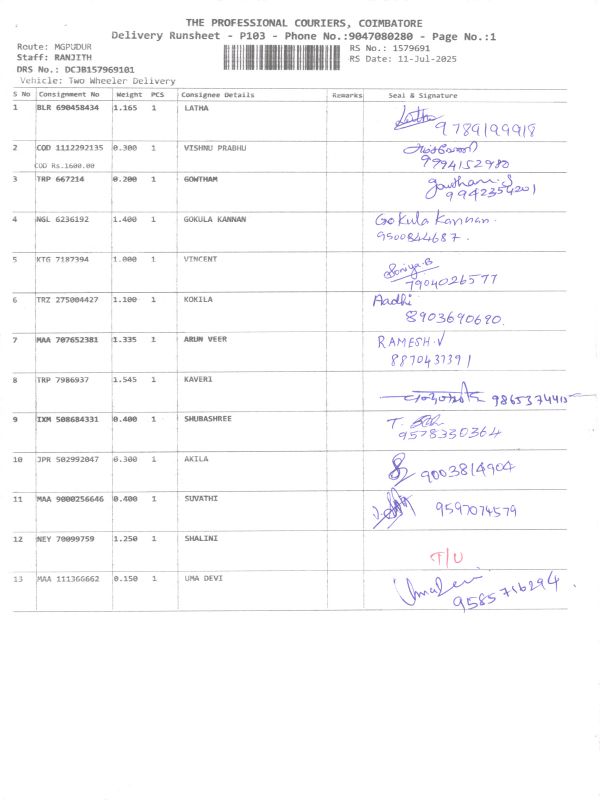 THE PROFESSIONAL COURIERS, COIMBATORE
Delivery Runsheet - P103 - Phone No.:9047080280 - Page No.:1
Route: MGPUDUR RS No.: 1579691
Staff: RANJITH RS Date: 11-Jul-2025
DRS No.: DCJB157969101
Vehicle: Two Wheeler Delivery
S No Consignment No Weight PCS Consignee Details Remarks Seal & Signature
1 BLR 690458434 1.165 1 LATHA Latha
9789199918
2 COD 1112292135 0.300 1 VISHNU PRABHU
COD Rs.1600.00 9994152980
3 TRP 667214 0.200 1 GOWTHAM Gowtham.S
9942354201
4 NGL 6236192 1.400 1 GOKULA KANNAN Gokula Kannan.
9500844687.
5 KTG 7187394 1.000 1 VINCENT Soniya.B
7904026577
6 TRZ 275004427 1.100 1 KOKILA Aadhi
8903690690
7 MAA 707652381 1.335 1 ARUN VEER RAMESH.V
8870437391
8 TRP 7986937 1.545 1 KAVERI 9865374415
9 IXM 508684331 0.400 1 SHUBASHREE T.
9578330364
10 JPR 502992047 0.300 1 AKILA 9003814904
11 MAA 9000256646 0.400 1 SUVATHI 9597074579
12 NEY 70099759 1.250 1 SHALINI T/U
13 MAA 111366662 0.150 1 UMA DEVI UmaDevi
9585716294